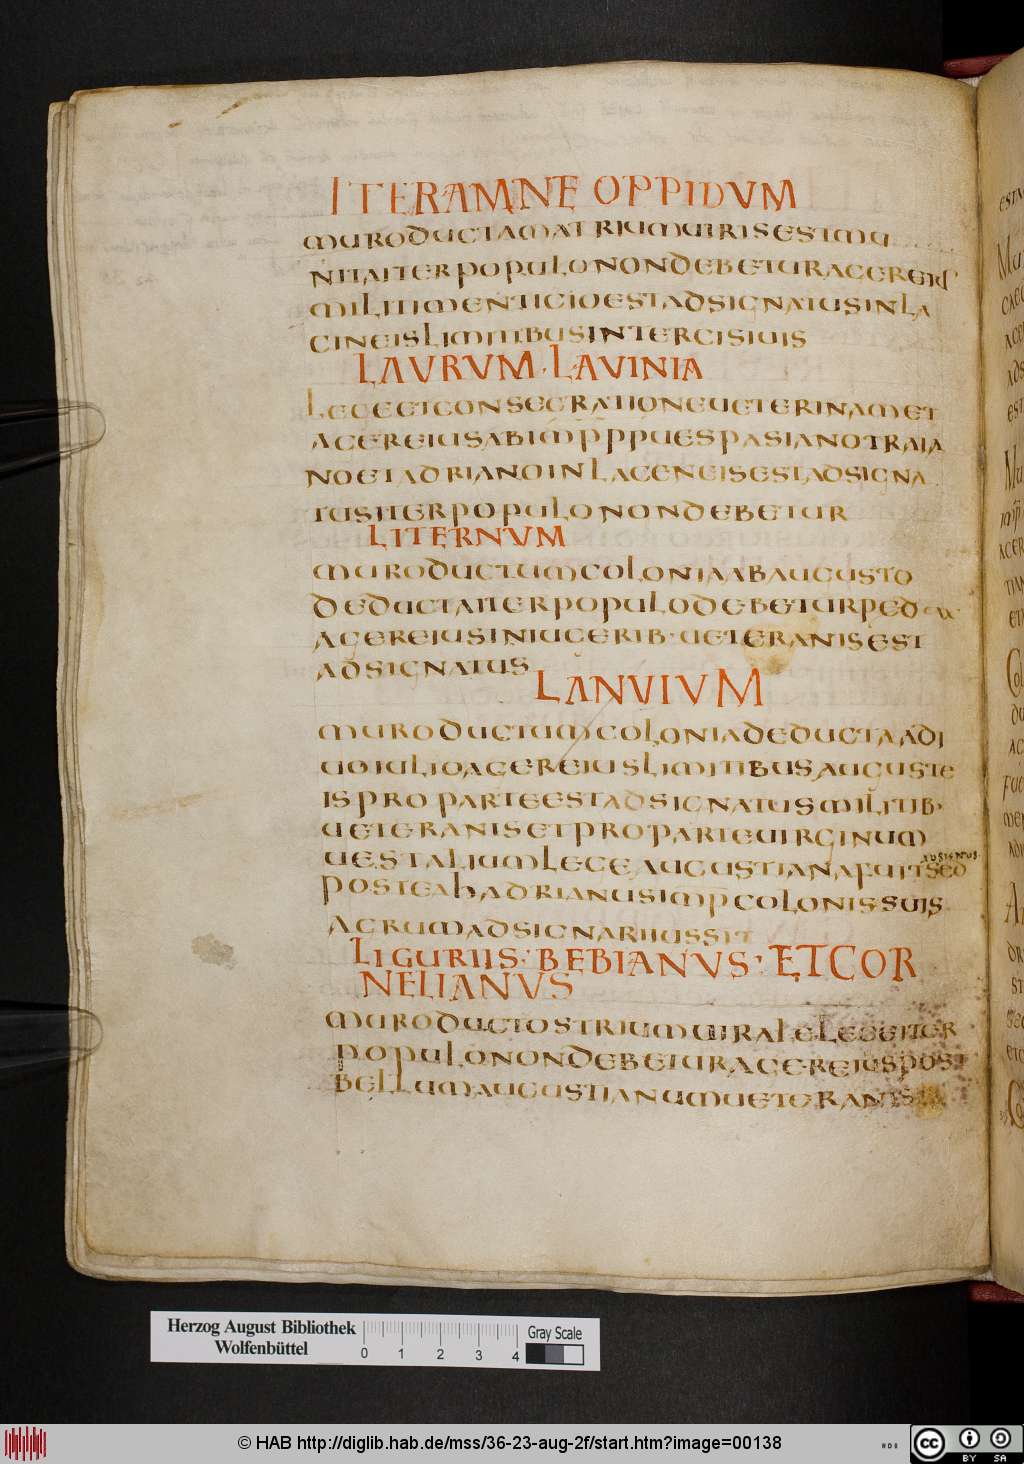 ITERAMNE OPPIDVM
MURODUCTAMATRIUMUIRISESTMU
NITAITERPOPULONONDEBETURAGEREIUS
MILITIMENTICIOESTADSIGNATUSINLA
CINEISLIMITIBUSINTERCISIUIS
LAVRVM·LAVINIA
LEGEETCONSECRATIONEUETERINAMET
AGEREIUSABIMPPPUESPASIANOTRAIA
NOETADRIANOINLACENEISESTADSIGNA
TUSITERPOPULONONDEBETUR
LITERNVM
MURODUCTUMCOLONIAABAUGUSTO
DEDUCTAITERPOPULODEBETURPED
AGEREIUSINIUGERIB·UETERANISEST
ADSIGNATUS
LANVIVM
MURODUCTUMCOLONIADEDUCTAADI
UOIULIOAGEREIUSLIMITIBUSAUGUSTE
ISPROPARTEESTADSIGNATUSMILITIB·
UETERANISETPROPARTEUIRGINUM
UESTALIUMLEGEAUGUSTIANAFUITSED
POSTEAHADRIANUSIMPCOLONISSUIS
AGRUMADSIGNARIIUSSIT
LIGURIIS: BEBIANVS: ETCOR
NELIANVS
MURODUCTOSTRIUMUIRALELEGEITER
POPULONONDEBETURAGEREIUSPOST
BELLUMAUGUSTIANUMUETERANIS
Herzog August Bibliothek
Wolfenbüttel
0 1 2 3 4
Gray Scale
© HAB http://diglib.hab.de/mss/36-23-aug-2f/start.htm?image=00138
cc BY SA